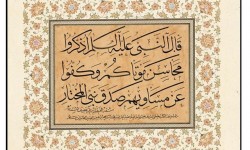 قال النبي عليه السلام اذكروا
محاسن موتاكم وكفوا
عن مساويهم صدق نبي المختار